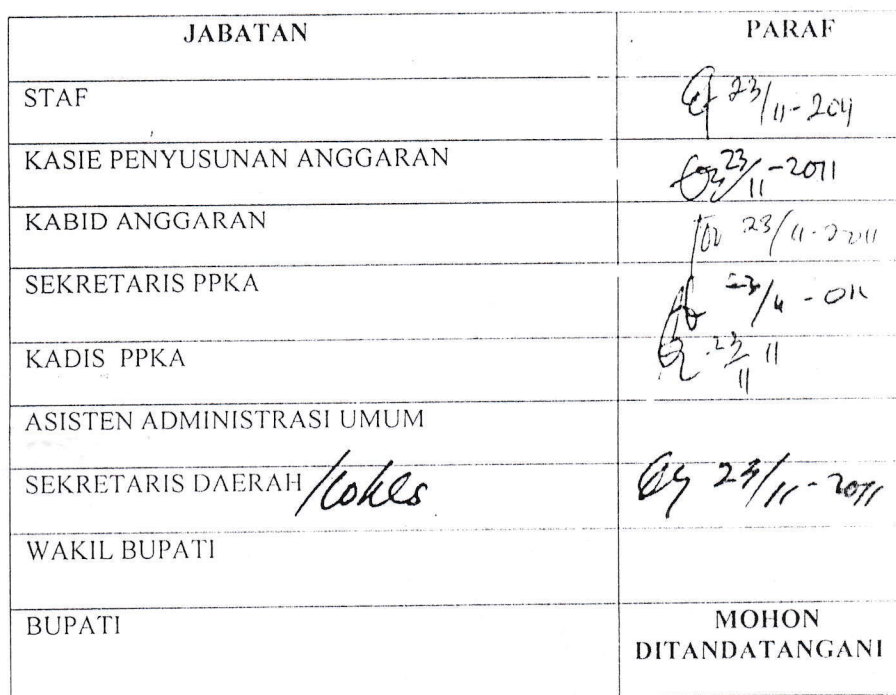 JABATAN PARAF
STAF 23/11-2011
KASIE PENYUSUNAN ANGGARAN 23/11-2011
KABID ANGGARAN 23/11-2011
SEKRETARIS PPKA 23/11-011
KADIS PPKA 23/11 11
ASISTEN ADMINISTRASI UMUM
SEKRETARIS DAERAH 23/11-2011
WAKIL BUPATI
BUPATI MOHON
DITANDATANGANI